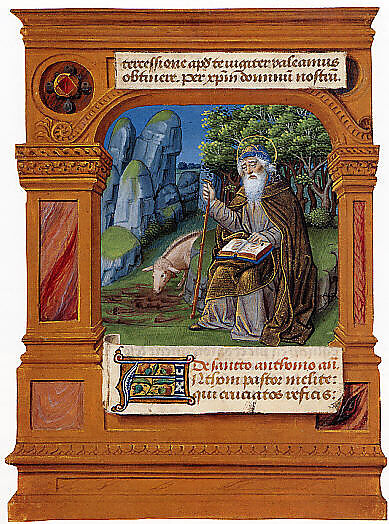 terressione apd te iugiter valeamus
obtinere. per xpm dominū nostrū.
De sancto anthonio añ.
Anthoni pastor inclite:
qui cruciatos reficis: